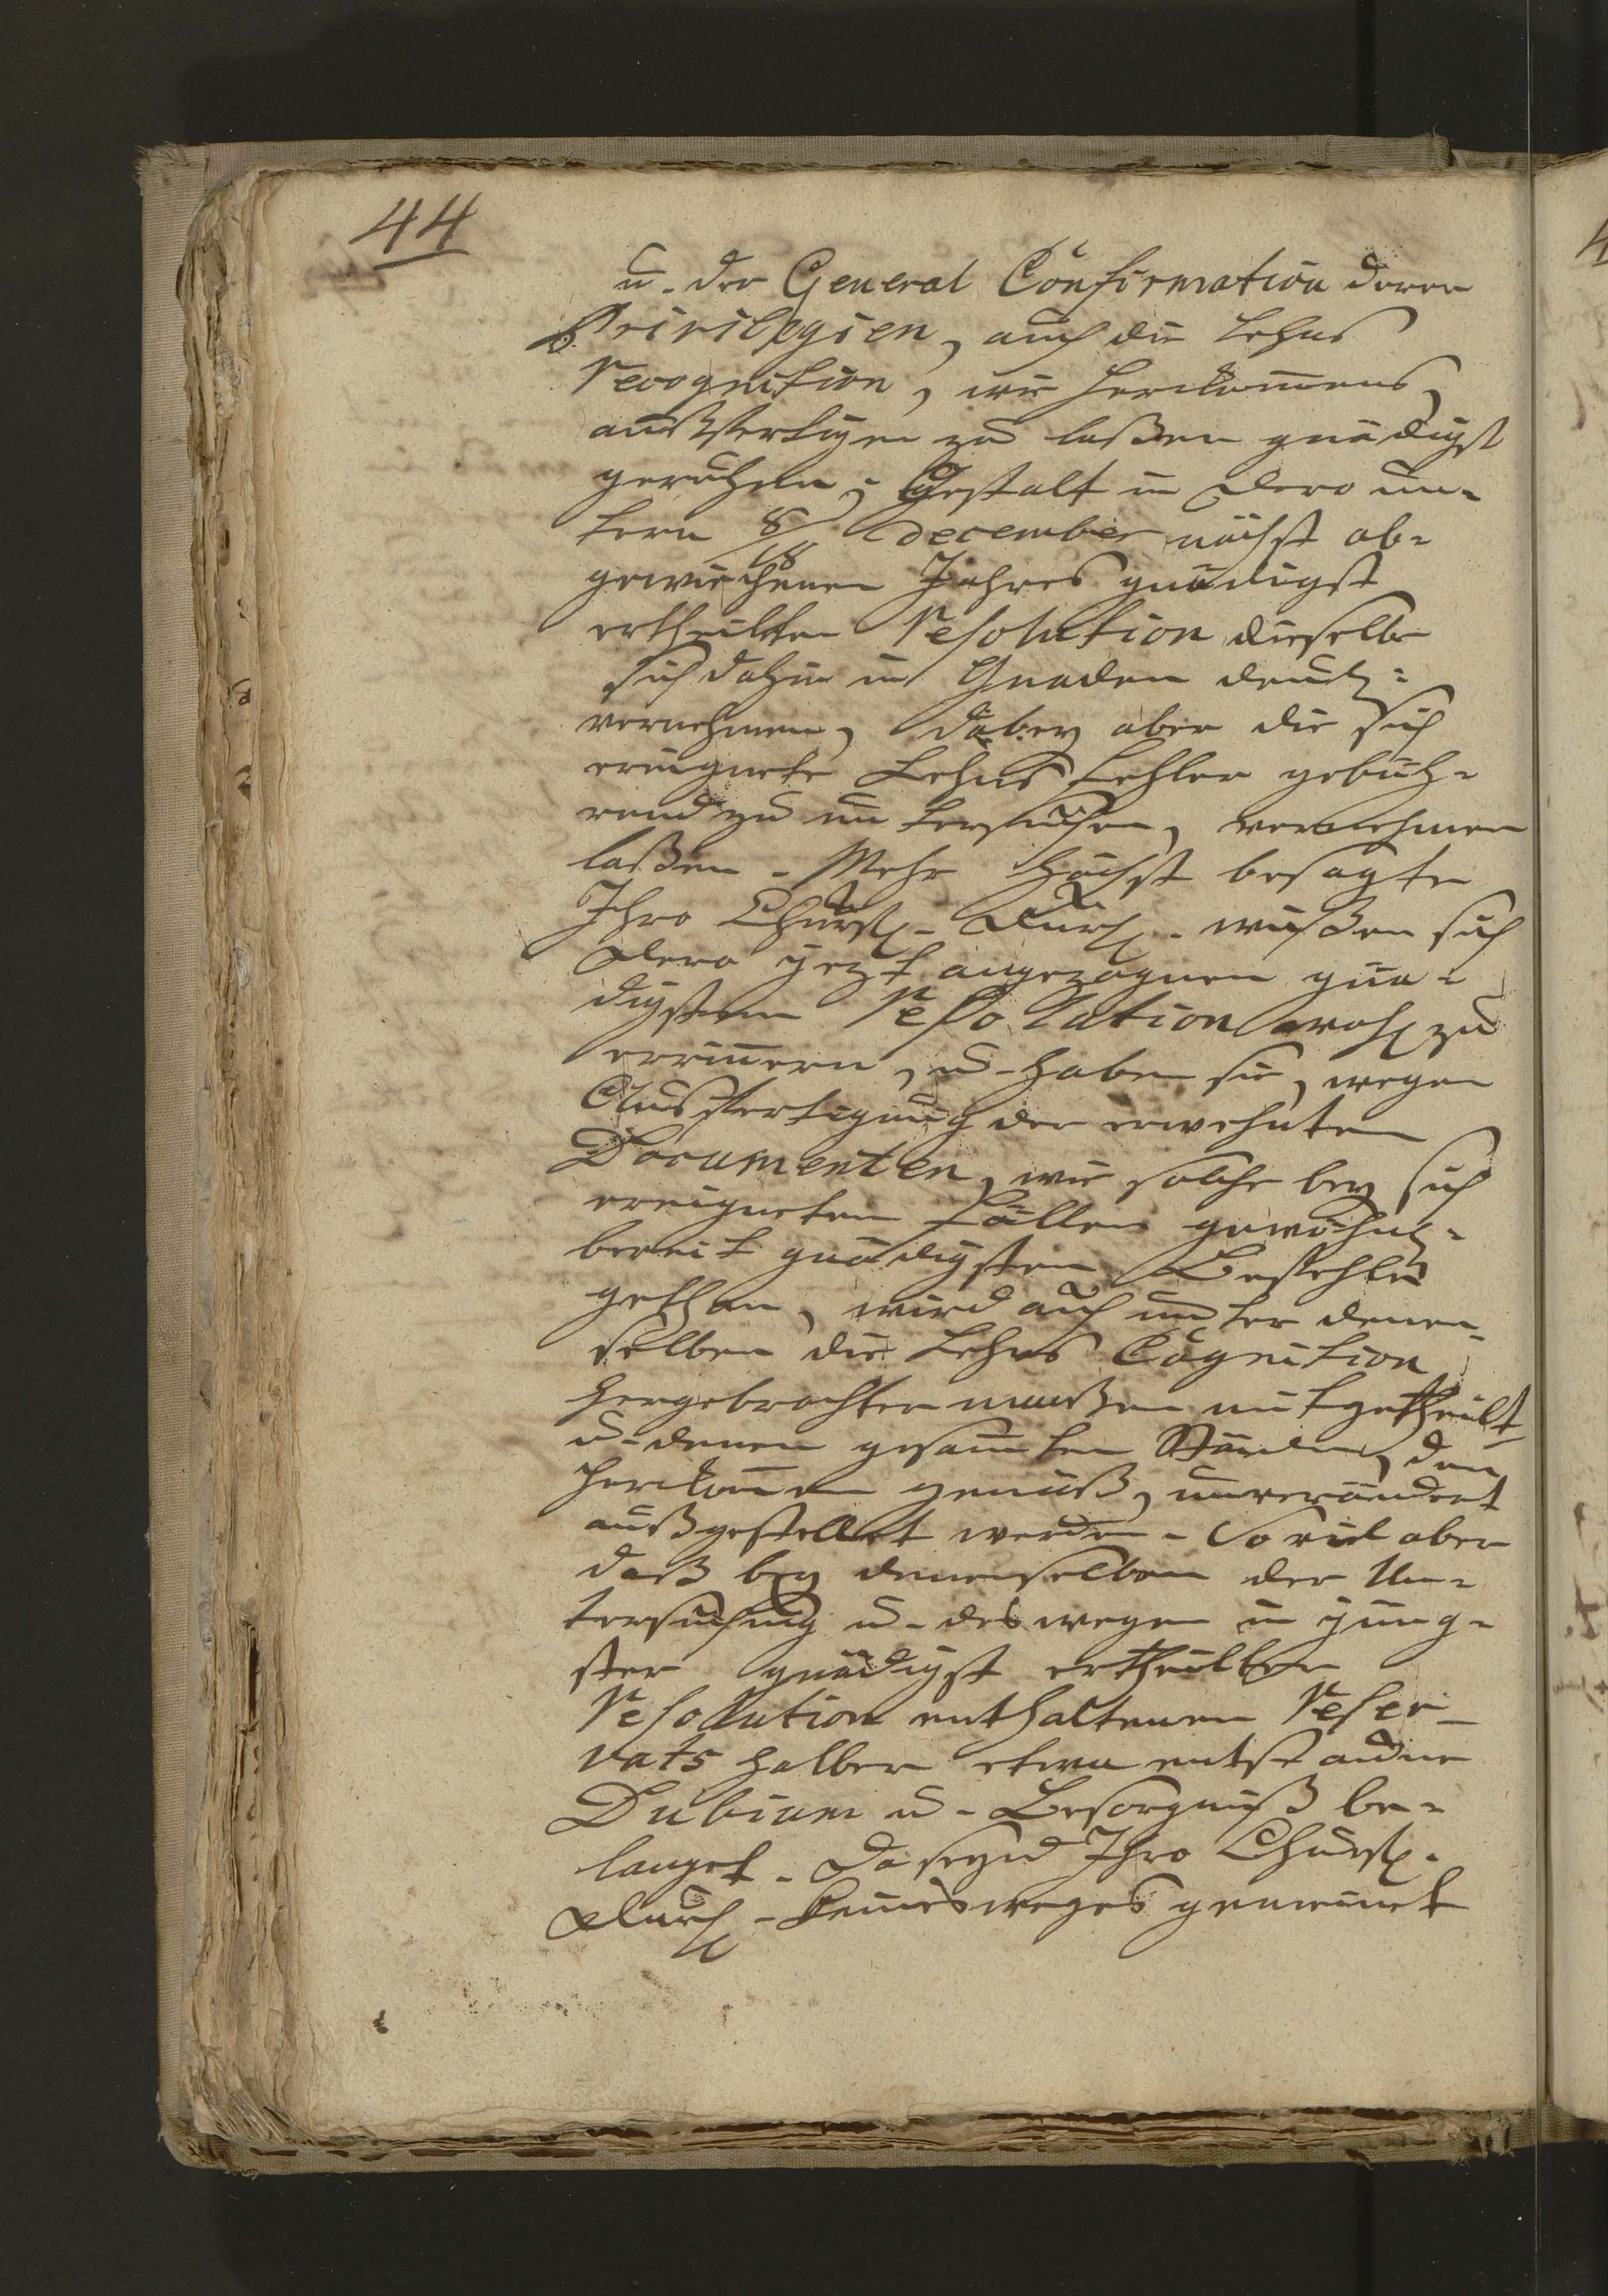 44
u. der General Confirmation derer
Privilegien, auch die Lehns
Recognition, wie Herkommens,
außfertigen zu laßen gnädigst
geruhen, Gestalt in dero un-
term 8/18 December nächst ab-
gewichenen Jahres gnädigst
ertheilten Resolution dieselbe
sich dahin in Gnaden
vernehmen, dabey aber die sich
ereignete Lehns Fehler gebüh-
rend zu untersuchen, vernehmen
laßen. Mehr höchst besagte
Ihro Churfl. Durchl. wißen sich
dero jezt angezognen gnä-
digsten Resolution wohl zu
erinnern, u. haben sie, wegen
Ausfertigung der erwehnten
Documenten, wie solche bey sich
ereigneten Fällen gewöhnl.
bereit gnädigsten Befehl
gethan, wird auch unter denen-
selben die Lehns Cognition
hergebrachter maaßen mitgetheilt
u. denen gesamten Ständen, dem
Herkommen gemäß, unverändert
außgestellet werden. So viel aber
daß bey denenselben der Un-
tersuchung u. deswegen in jüng-
ster gnädigst ertheilten
Resolution enthaltenen Reser-
vats halber etwa entstandne
Dubium u. Besorgniß be-
langet. Da seynd Ihro Churfl.
Durchl. keinesweges gemeinet